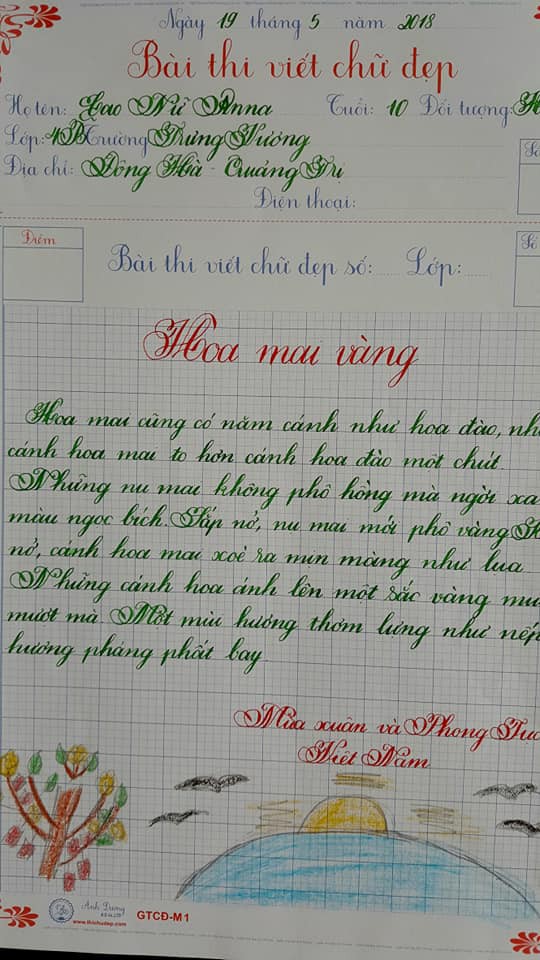 Ngày 19 tháng 5 năm 2018
Bài thi viết chữ đẹp
Họ tên: Cao Nữ Anna Tuổi: 10 Đối tượng:
Lớp: 4B Trường Trưng Vương
Địa chỉ: Đông Hà - Quảng Trị
Điện thoại:
Điểm
Bài thi viết chữ đẹp số: Lớp:
Số
Hoa mai vàng
Hoa mai cũng có năm cánh như hoa đào, nh
cánh hoa mai to hơn cánh hoa đào một chút.
Những nụ mai không phô hồng mà ngời xa
màu ngọc bích. Sắp nở, nụ mai mới phô vàng
nở, cánh hoa mai xoè ra mịn màng như lụa
Những cánh hoa ánh lên một sắc vàng mu
mượt mà. Một mùi hương thơm lựng như nếp
hương phảng phất bay.
Mùa xuân và Phong Tục
Việt Nam
Ánh Dương
www.thichudep.com
GTCĐ-M1